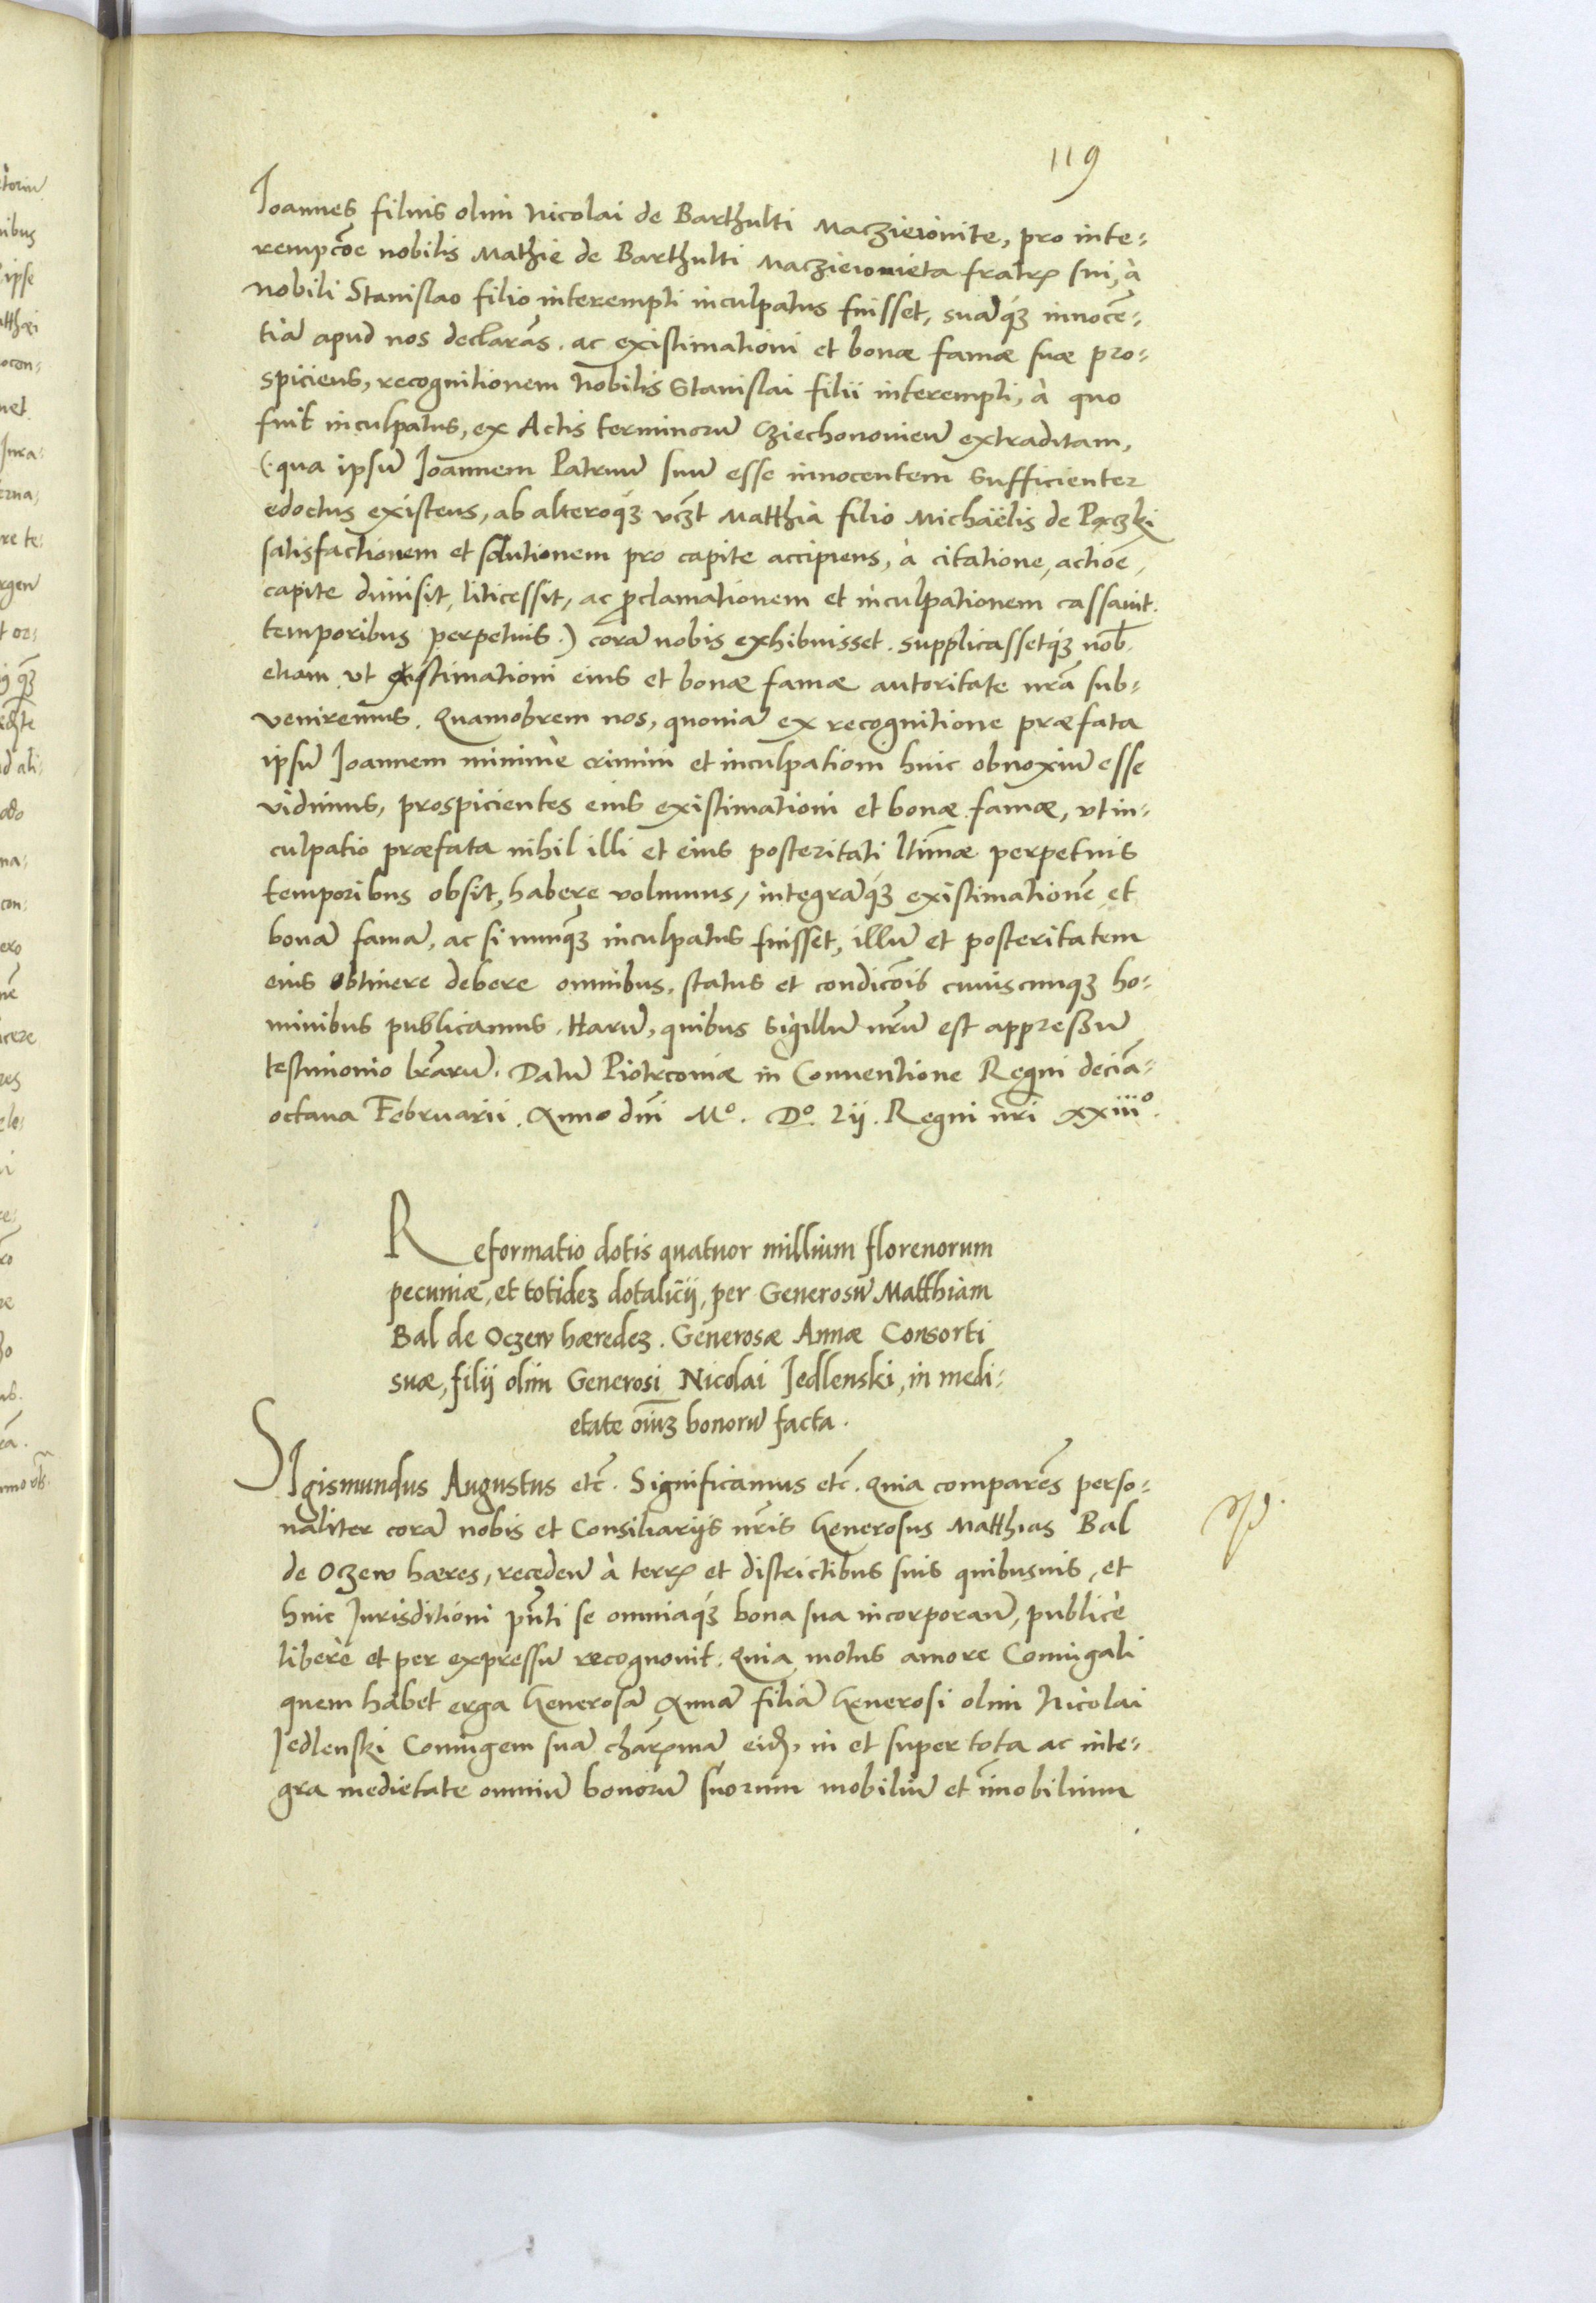 119
Ioannes filius olim Nicolai de Barthulti Maczieiovite, pro inte-
rempcõe nobilis Mathie de Barthulti Maczieiovieta fratrꝭ sui, à
nobili Stanislao filio interempti inculpatus fuisset, suãq́ꝫ innocẽ-
tiã apud nos declarãs. ac existimationi et bonæ famæ suæ pro-
spiciens, recognitionem Nobilis Stanislai filii interempti, à quo
fuit inculpatus, ex Actis terminorũ Cziechonovieñ extraditam,
(:qua ipsũ Ioannem Patruũ suũ esse innocentem sufficienter
edoctus existens, ab alteroq́ꝫ vcꝫt Matthia filio Michaëlis de Pączki
satisfactionem et solutionem pro capite accipiens, à citatione, actiõe,
capite dimisit, liticessit, ac p̃clamationem et inculpationem cassavit.
temporibus perpetuis.) corã nobis exhibuisset. supplicassetq́ꝫ nob̃.
etiam, ut existimationi eius et bonæ famæ autoritate nr̃a sub-
veniremus. Quamobrem nos, quoniã ex recognitione præfata
ipsũ Ioannem minimè crimini et inculpationi huic obnoxiũ esse
vidimus, prospicientes eius existimationi et bonæ famæ, ut in-
culpatio præfata nihil illi et eius posteritati ltĩmæ perpetuis
temporibus obsit, habere volumus, integrãq́ꝫ existimationẽ et
bonã famã, ac si nunq̃ꝫ inculpatus fuisset, illũ et posteritatem
eius obtinere debere omnibus, status et condicõis cuiuscunqꝫ ho-
minibus publicamus. Harũ, quibus sigillũ nr̃um est appressũ
testimonio lr̃arũ. Datũ Piotrcoviæ in Conventione Regni deciã-
octava Februarii. Anno dñi Mº. Dº. Lii. Regni nr̃i xxiiiº.
Reformatio dotis quatuor millium florenorum
pecuniæ, et totideꝫ dotalicii, per Generosũ Matthiam
Bal de Oczew hæredeꝫ. Generosæ Annæ Consorti
suæ, filij olim Generosi Nicolai Jedlenski, in medi-
etate oĩuꝫ bonorũ facta.
SIgismundus Augustus etc̃. Significamus etc̃. Quia comparẽs perso-
naliter corã nobis et Consiliarijs nr̃is Generosus Matthias Bal
de Oczew hæres, recedeñ à terrꝭ et districtibus suis quibusvis, et
huic Jurisditioni pñti se omniaq́ꝫ bona sua incorporañ, publicè
liberè et per expressũ recognovit. Quia motus amore Coniugali
quem habet erga Generosã Annã filiã Generosi olim Nicolai
Jedlenski Coniugem suã charꝭimã eiđ, in et super tota ac inte-
gra medietate omniũ bonorũ suorum mobiliũ et im̃obilium